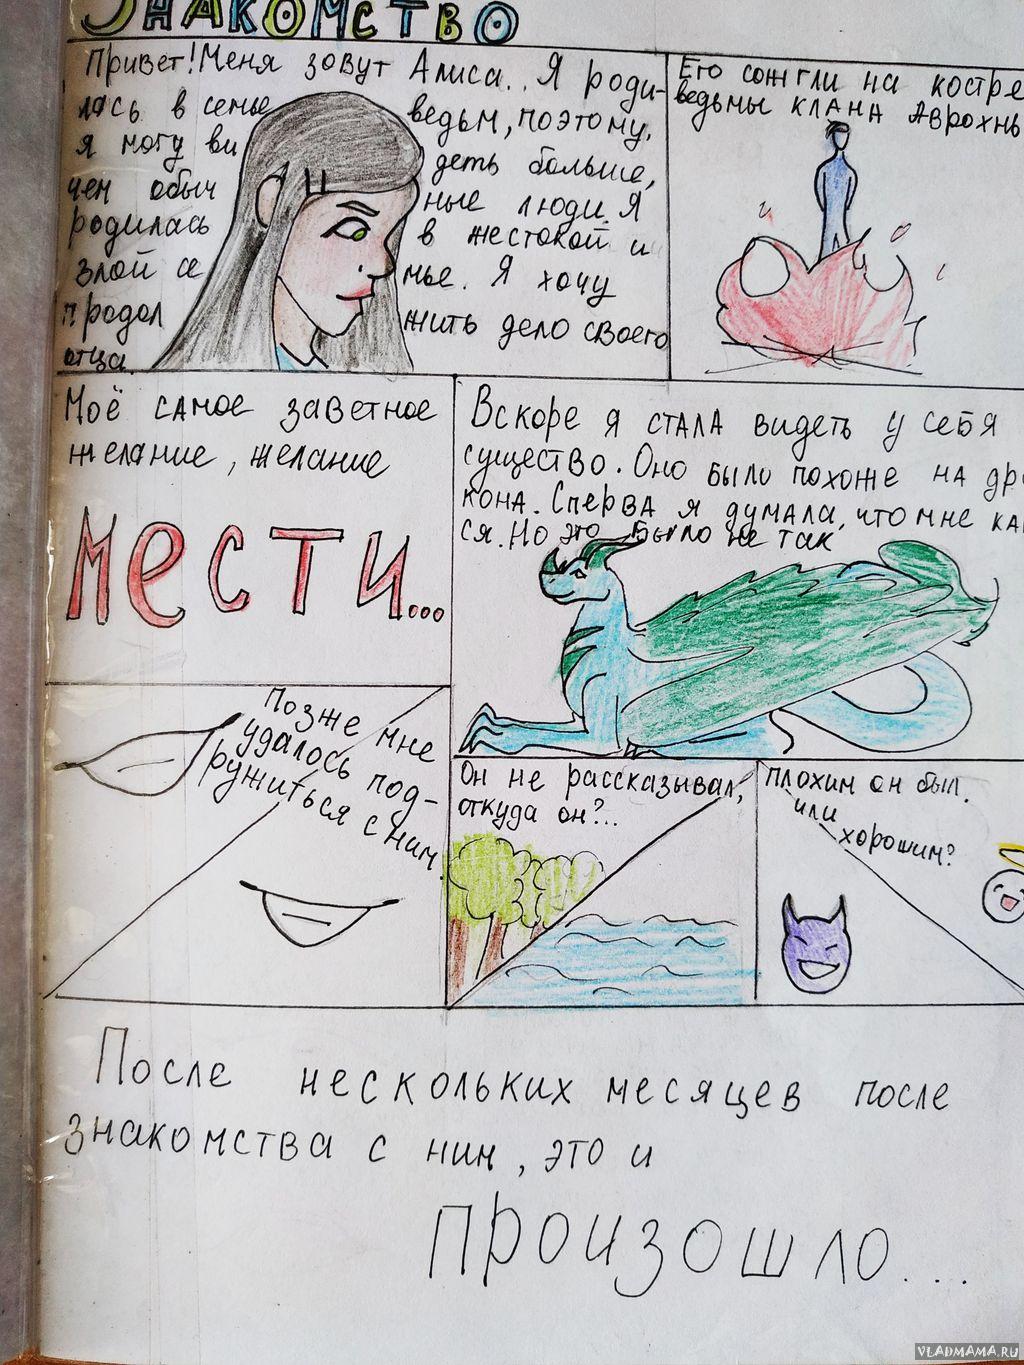 Знакомство
Привет! Меня зовут Алиса.. Я роди-
лась в семье ведьм, поэтому,
я могу видеть больше,
чем обычные люди. Я
родилась в жестокой и
злой семье. Я хочу
продолжить дело своего
отца.
Его сожгли на костре
ведьмы клана Аврохнь
Моё самое заветное
желание, желание
мести...
Вскоре я стала видеть у себя
существо. Оно было похоже на дра
кона. Сперва я думала, что мне каж
ся. Но это было не так
Позже мне
удалось под-
ружиться с ним.
Он не рассказывал,
откуда он?..
плохим он был.
или
хорошим?
После нескольких месяцев после
знакомства с ним, это и
произошло...
VLADMAMA.RU